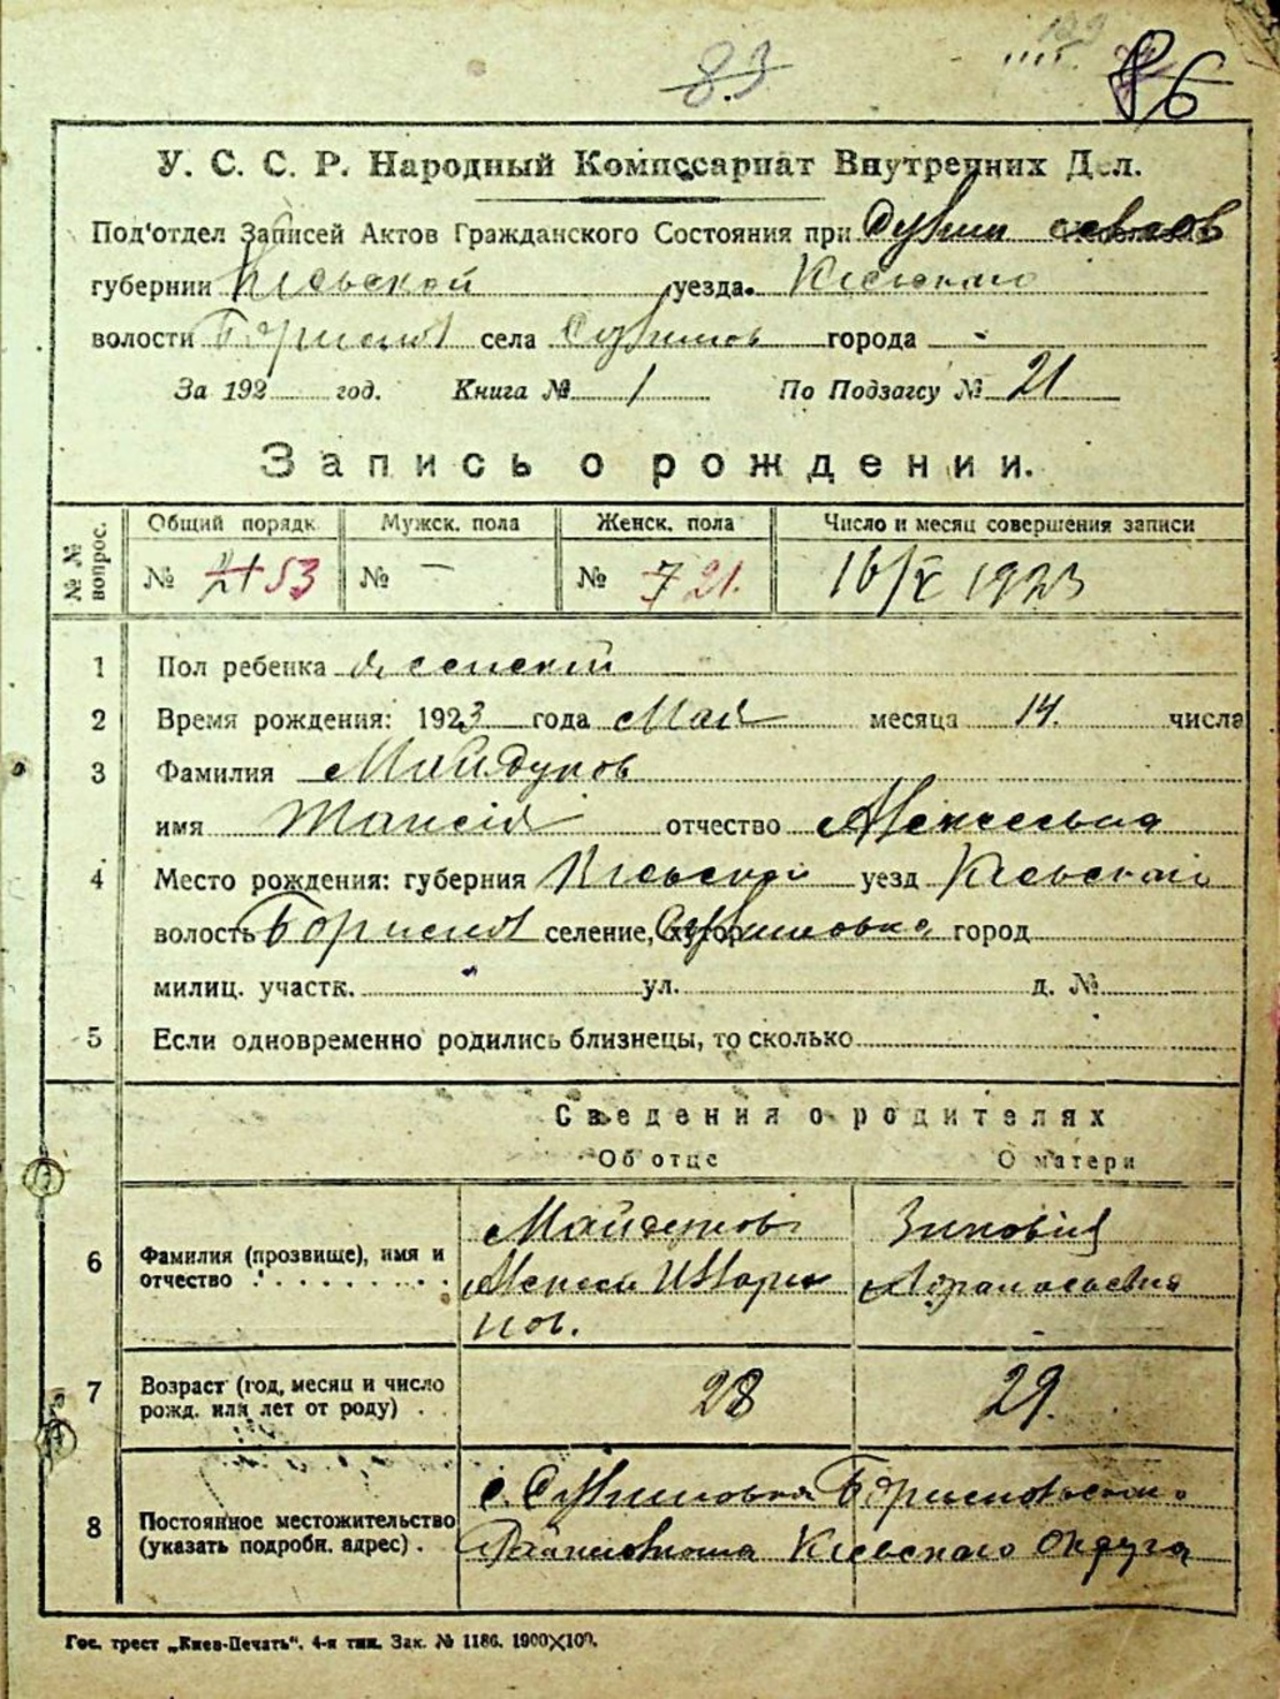 83
86
У. С. С. Р. Народный Комиссариат Внутренних Дел.
Под'отдел Записей Актов Гражданского Состояния при
губернии Киевской уезда. Киевского
волости села города -
За 192 год. Книга № 1 По Подзагсу № 21
Запись о рождении.
№ № вопрос.
Общий порядк. Мужск. пола Женск. пола Число и месяц совершения записи
№ 21 53 № — № 7 21. 16/V 1923
1 Пол ребенка женский
2 Время рождения: 1923 года Мая месяца 14. числа
3 Фамилия Майдуков
имя Таисія отчество Алексеевна
4 Место рождения: губерния Киевской уезд Киевский
волость селение, хутор город
милиц. участк. ул. д. №
5 Если одновременно родились близнецы, то сколько
Сведения о родителях
Об отце О матери
6 Фамилия (прозвище), имя и отчество Майдуков Зиновія
Алексей
7 Возраст (год, месяц и число рожд. или лет от роду) 28 29.
8 Постоянное местожительство (указать подробн. адрес) с.
Киевского Округа
Гос. трест „Киев-Печать". 4-я тип. Зак. № 1186. 1900×100.